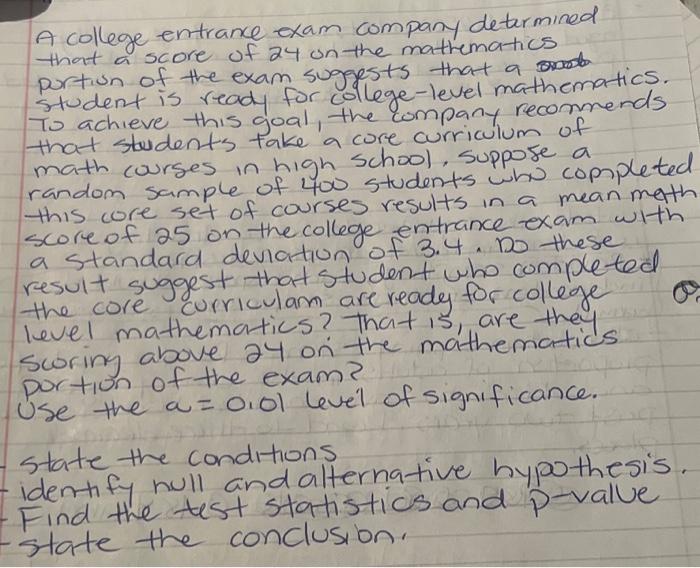 A college entrance exam company determined
that a score of 24 on the mathematics
portion of the exam suggests that a
student is ready for college-level mathematics.
To achieve this goal, the company recommends
that students take a core curriculum of
math courses in high school. Suppose a
random sample of 400 students who completed
this core set of courses results in a mean math
score of 25 on the college entrance exam with
a standard deviation of 3.4. Do these
result suggest that student who completed
the core curriculam are ready for college
level mathematics? That is, are they
scoring above 24 on the mathematics
portion of the exam?
Use the a = 0.01 level of significance.
- state the conditions
- identify null and alternative hypothesis.
- Find the test statistics and p-value
- state the conclusion.